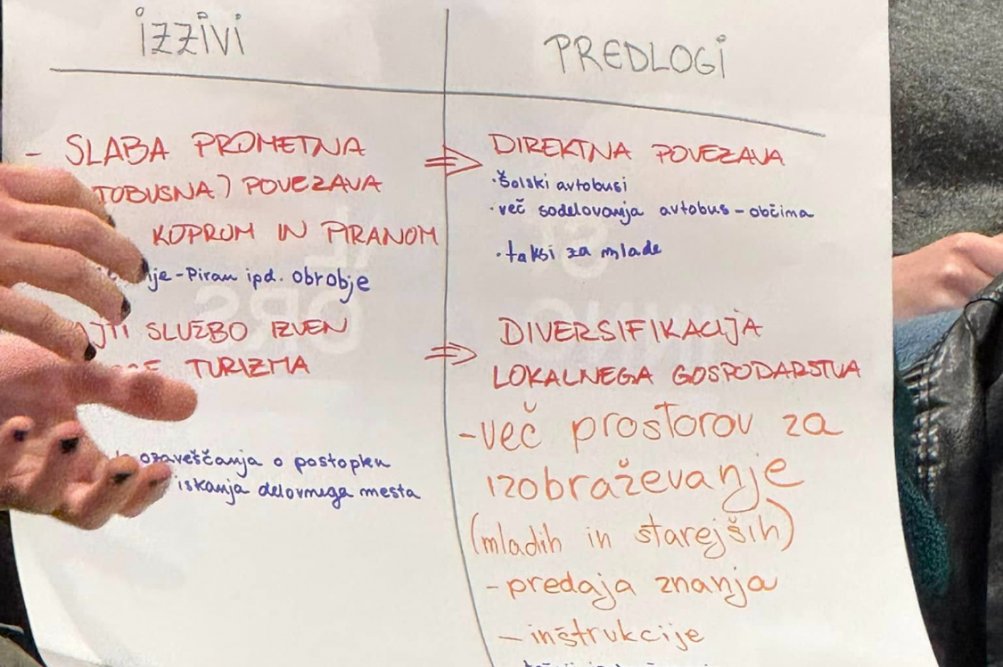 IZZIVI
- SLABA PROMETNA
TOBUSNA) POVEZAVA
KOPROM IN PIRANOM
nje-Piran ipd. obrobje
AJTI SLUŽBO IZVEN
TURIZMA
ozaveščanja o postopku
iskanja delovnega mesta
PREDLOGI
⇒ DIREKTNA POVEZAVA
·šolski avtobusi
·več sodelovanja avtobus-občima
·taksi za mlade
⇒ DIVERSIFIKACIJA
LOKALNEGA GOSPODARSTVA
-več prostorov za
izobraževanje
(mladih in starejših)
-predaja znanja
-inštrukcije